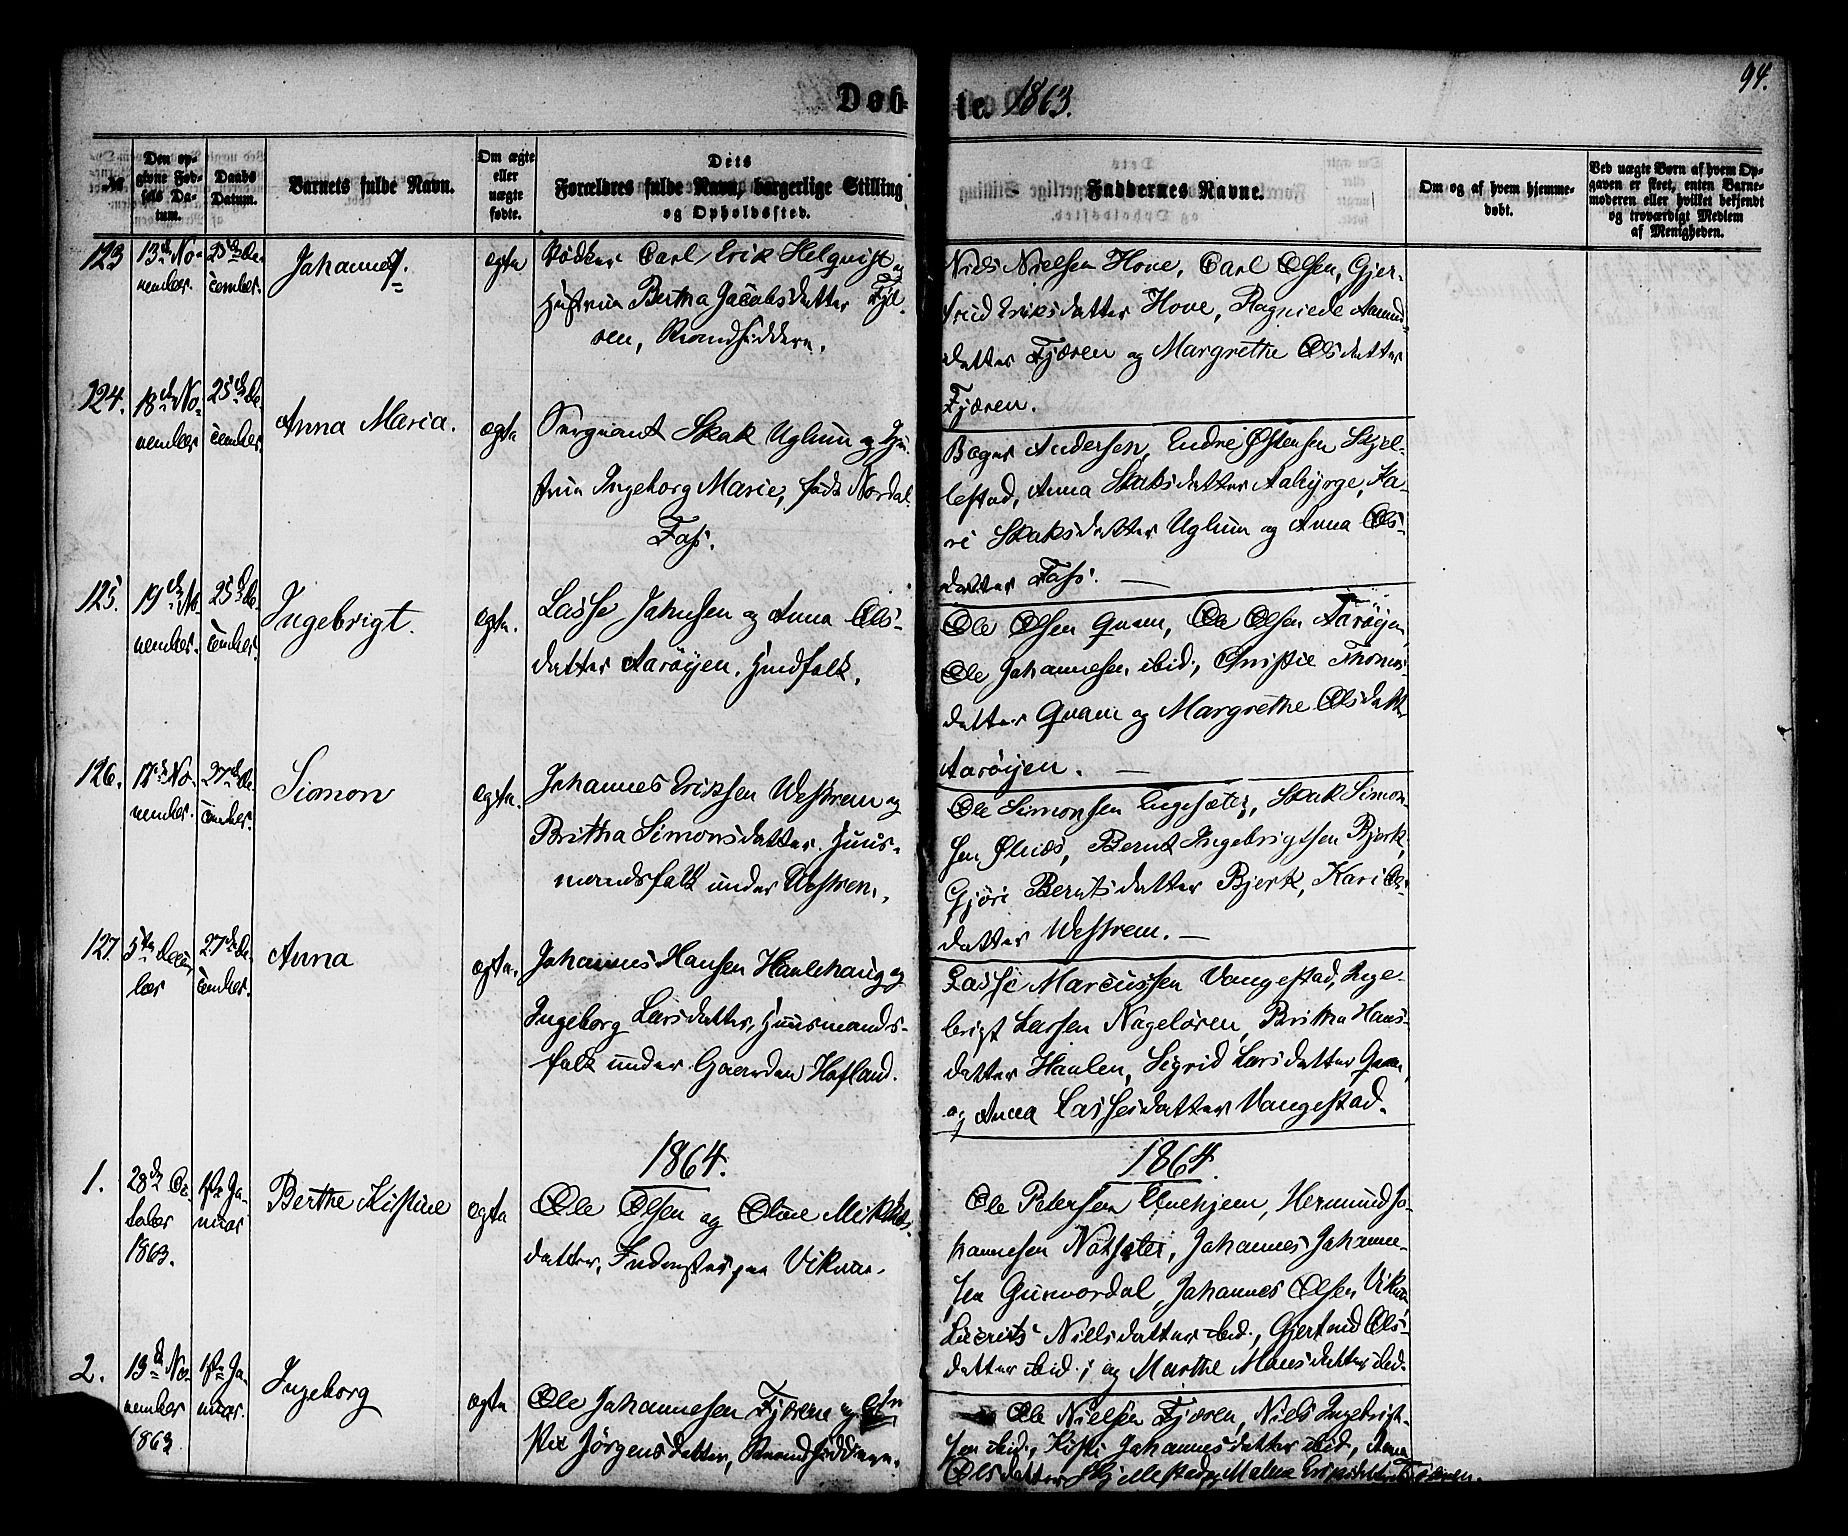 94.
Døbte 1863.
№
Den opgivne Fødsels Datum.
Daabs Datum.
Barnets fulde Navn.
Om ægte eller uægte fødte.
Dets Forældres fulde Navn, borgerlige Stilling og Opholdssted.
Faddernes Navne.
Om og af hvem hjemmedøbt.
Ved uægte Børn af hvem Opgaven er skeet, enten Barnemoderen eller hvilket bekjendt og troværdigt Medlem af Menigheden.
123
13de No-
vember
25de De-
cember.
Johannes.
ægte
Bødker Carl Erik Helqvist og
Hustrue Bertha Jacobsdatter Fjæ-
ren, Strandsiddere.
Niels Nielsen Hove, Carl Olsen, Gjer-
trud Eriksdatter Hove, Ragniede Aamund-
datter Fjæren og Margrethe Olsdatter
Fjæren.
124.
18de No-
vember
25de De-
cember.
Anna Maria.
ægte
Sergeant Skak Uglum og Hu-
strue Ingeborg Marie, født Nordal
Foss.
Andersen, Endre Østensen Skjel-
lestad, Anna Skaksdatter Ka-
ri Skaksdatter Uglum og Anna Ols-
datter Foss. —
125.
19de No-
vember.
25de De-
cember.
Ingebrigt.
ægte.
Lasse Johnsen og Anna Ols-
datter Aarøyen. Huusfolk.
Ole Olsen Quam, Ole Olsen Aarøyen,
Ole Johannesen ibid., Christie Thomas-
datter Quam og Margrethe Olsdatter
Aarøyen. —
126.
17de No-
vember.
27de De-
cember.
Simon
ægte.
Johannes Eriksen Westrem og
Britha Simonsdatter. Huus-
mandsfolk under Westrem.
Ole Simonsen Engesæter, Skak Simon-
sen Bernt Ingebrigtsen Bjerk,
Gjøri Berntsdatter Bjerk, Kari Ols-
datter Westrem. —
127.
5te Decem-
ber
27de De-
cember.
Anna
ægte.
Johannes Hansen Haulehaug og
Ingeborg Larsdatter, Huusmands-
folk under Gaarden Hofland.
Lasse Marcussen Vangestad, Inge-
brigt Larsen Nageløren, Britha Hans-
datter Haulen, Sigrid Larsdatter Quam,
og Anna Lassesdatter Vangestad.
1864.
1864
1.
28de Oc-
tober
1863.
1ste Ja-
nuar
Berthe Kistine
ægte
Ole Olsen og Oline Mikkels-
datter, Inderster paa Vikum.
Ole Petersen Hermund Jo-
hannesen Nøtseter, Johannes Johanne-
sen Gunvordal, Johannes Olsen Vikum,
Nielsdatter ibid., Gjertrud Ols-
datter ibid.; og Marthe Monsdatter ibid.
2.
13de No-
vember
1863.
1ste Ja-
nuar.
Ingeborg
ægte
Ole Johannesen Fjæren og Chri-
stie Jørgensdatter, Strandsiddere.
Ole Nielsen Fjæren, Niels Ingebrigt-
sen ibid., Kisti Johannesdatter ibid., Anna
Olsdatter Skjellestad og Malene Fjæren.